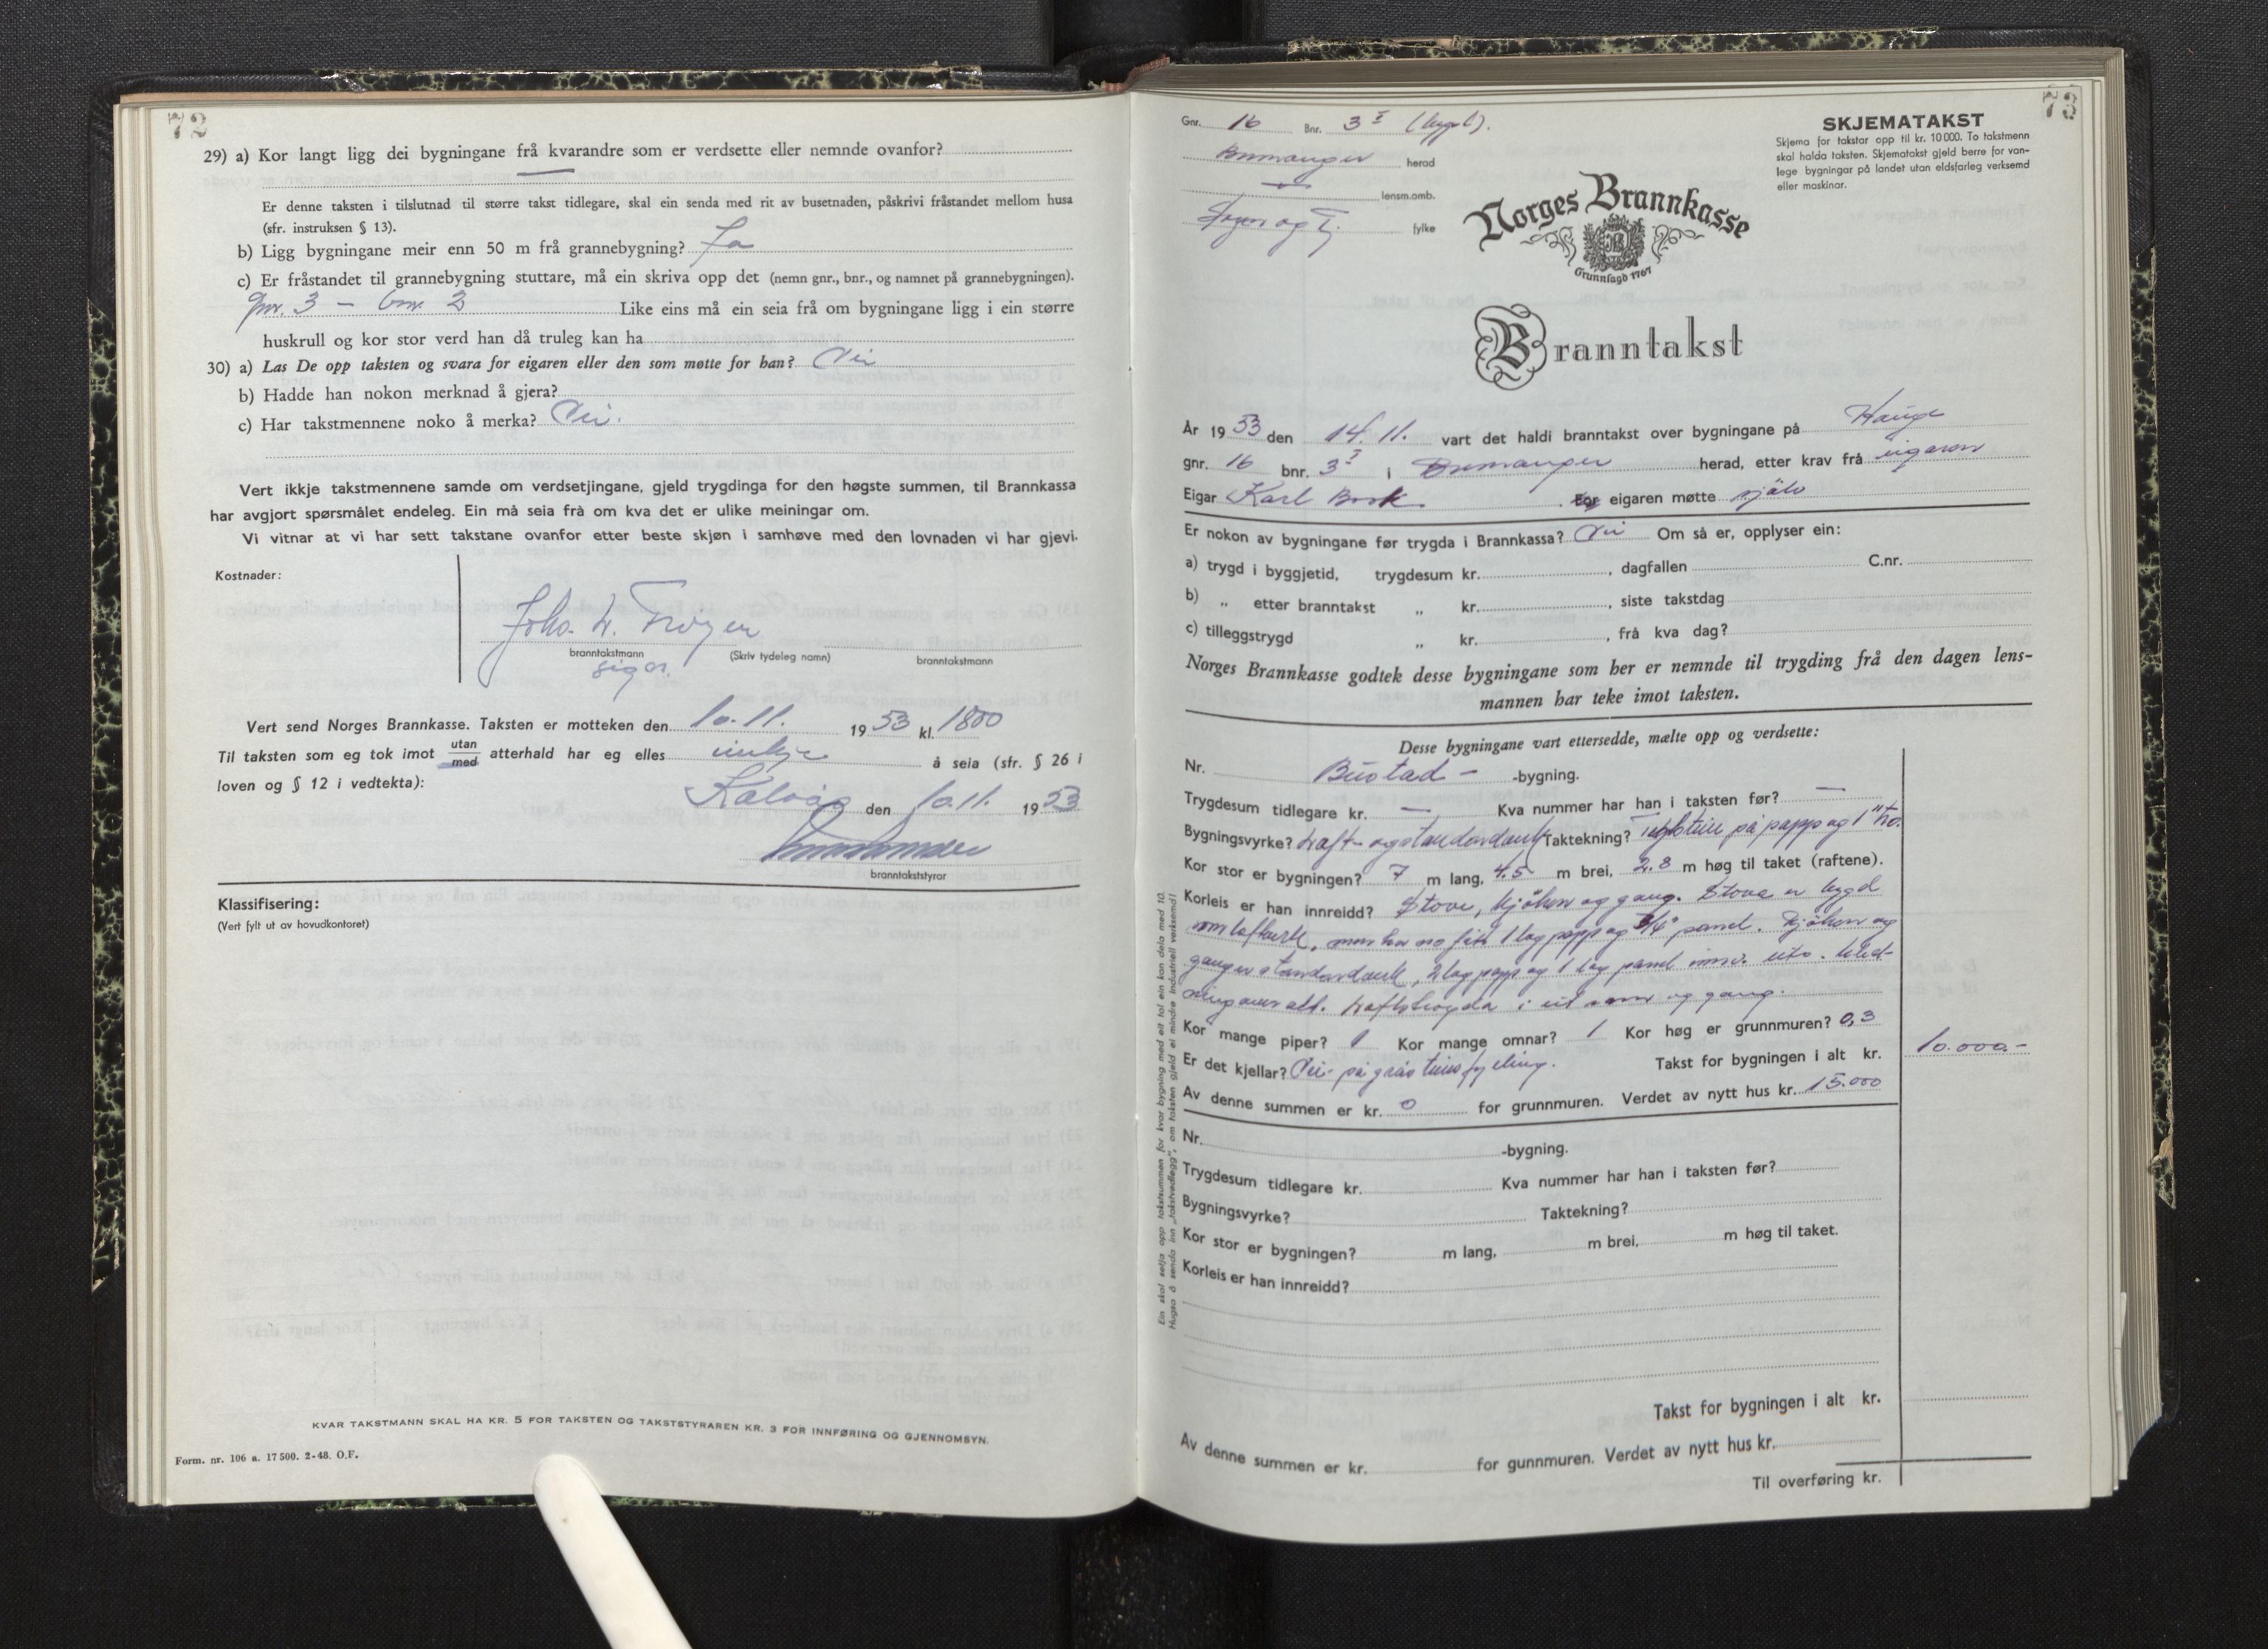 72
29) a) Kor langt ligg dei bygningane frå kvarandre som er verdsette eller nemnde ovanfor?
Er denne taksten i tilslutnad til større takst tidlegare, skal ein senda med rit av busetnaden, påskrivi fråstandet mellom husa
(sfr. instruksen § 13).
b) Ligg bygningane meir enn 50 m frå grannebygning? Ja
c) Er fråstandet til grannebygning stuttare, må ein skriva opp det (nemn gnr., bnr., og namnet på grannebygningen).
gnr. 3 - bnr. 2 Like eins må ein seia frå om bygningane ligg i ein større
huskrull og kor stor verd han då truleg kan ha
30) a) Las De opp taksten og svara for eigaren eller den som møtte for han? Nei
b) Hadde han nokon merknad å gjera?
c) Har takstmennene noko å merka? Nei.
Vert ikkje takstmennene samde om verdsetjingane, gjeld trygdinga for den høgste summen, til Brannkassa
har avgjort spørsmålet endeleg. Ein må seia frå om kva det er ulike meiningar om.
Vi vitnar at vi har sett takstane ovanfor etter beste skjøn i samhøve med den lovnaden vi har gjevi.
Kostnader:
Johs. L.
branntakstmann (Skriv tydeleg namn) branntakstmann
sign.
Vert send Norges Brannkasse. Taksten er motteken den 10.11. 1953 kl. 1800
Til taksten som eg tok imot utan/med atterhald har eg elles inkje å seia (sfr. § 26 i
loven og § 12 i vedtekta):
Kalvåg den 10.11. 1953
branntakststyrar
Klassifisering:
(Vert fylt ut av hovudkontoret)
KVAR TAKSTMANN SKAL HA KR. 5 FOR TAKSTEN OG TAKSTSTYRAREN KR. 3 FOR INNFØRING OG GJENNOMSYN.
Form. nr. 106 a. 17 500. 2-48. O.F.
73
Gnr. 16 Bnr. 3 I (bygsl).
Bremanger herad
lensm.omb.
Sogn og Fj. fylke
SKJEMATAKST
Skjema for takstar opp til kr. 10 000. To takstmenn
skal halda taksten. Skjematakst gjeld berre for van-
lege bygningar på landet utan eldsfarleg verksemd
eller maskinar.
Norges Brannkasse
Grunnlagd 1767
Branntakst
År 1953 den 14.11. vart det haldi branntakst over bygningane på Hauge
gnr. 16 bnr. 3 I i Bremanger herad, etter krav frå eigaren
Eigar Karl Brok. For eigaren møtte sjølv
Er nokon av bygningane før trygda i Brannkassa? Nei Om så er, opplyser ein:
a) trygd i byggjetid, trygdesum kr. , dagfallen C.nr.
b) „ etter branntakst „ kr. , siste takstdag
c) tilleggstrygd „ kr. , frå kva dag?
Norges Brannkasse godtek desse bygningane som her er nemnde til trygding frå den dagen lens-
mannen har teke imot taksten.
Desse bygningane vart ettersedde, mælte opp og verdsette:
Nr. Bustad - -bygning.
Trygdesum tidlegare kr. — Kva nummer har han i taksten før? —
Bygningsvyrke? Laft- og standardverk Taktekning? Teglstein på papp og 1" bo.
Kor stor er bygningen? 7 m lang, 4.5 m brei, 2.8 m høg til taket (raftene).
Korleis er han innreidd? Stove, kjøken og gang. Stova er bygd
som lafteverk, men har no fått 1 lag papp og 3/4" panel. Kjøken og
gang er standardverk, 2 lag papp og 1 lag panel innv. utv. kled-
ning overalt. i og gang.
Kor mange piper? 1 Kor mange omnar? 1 Kor høg er grunnmuren? 0,3
Er det kjellar? Nei - på gråsteinsfylling. Takst for bygningen i alt kr. 10.000.-
Av denne summen er kr. 0 for grunnmuren. Verdet av nytt hus kr. 15.000
Nr. -bygning.
Trygdesum tidlegare kr. Kva nummer har han i taksten før?
Bygningsvyrke? Taktekning?
Kor stor er bygningen? m lang, m brei, m høg til taket.
Korleis er han innreidd?
Takst for bygningen i alt kr.
Av denne summen er kr. for gunnmuren. Verdet av nytt hus kr.
Til overføring kr.
Ein skal setja opp takstsummen for kvar bygning med eit tal ein kan dela med 10.
Hugsa å senda inn „takstvedlegg", om taksten gjeld ei mindre industriell verksemd!